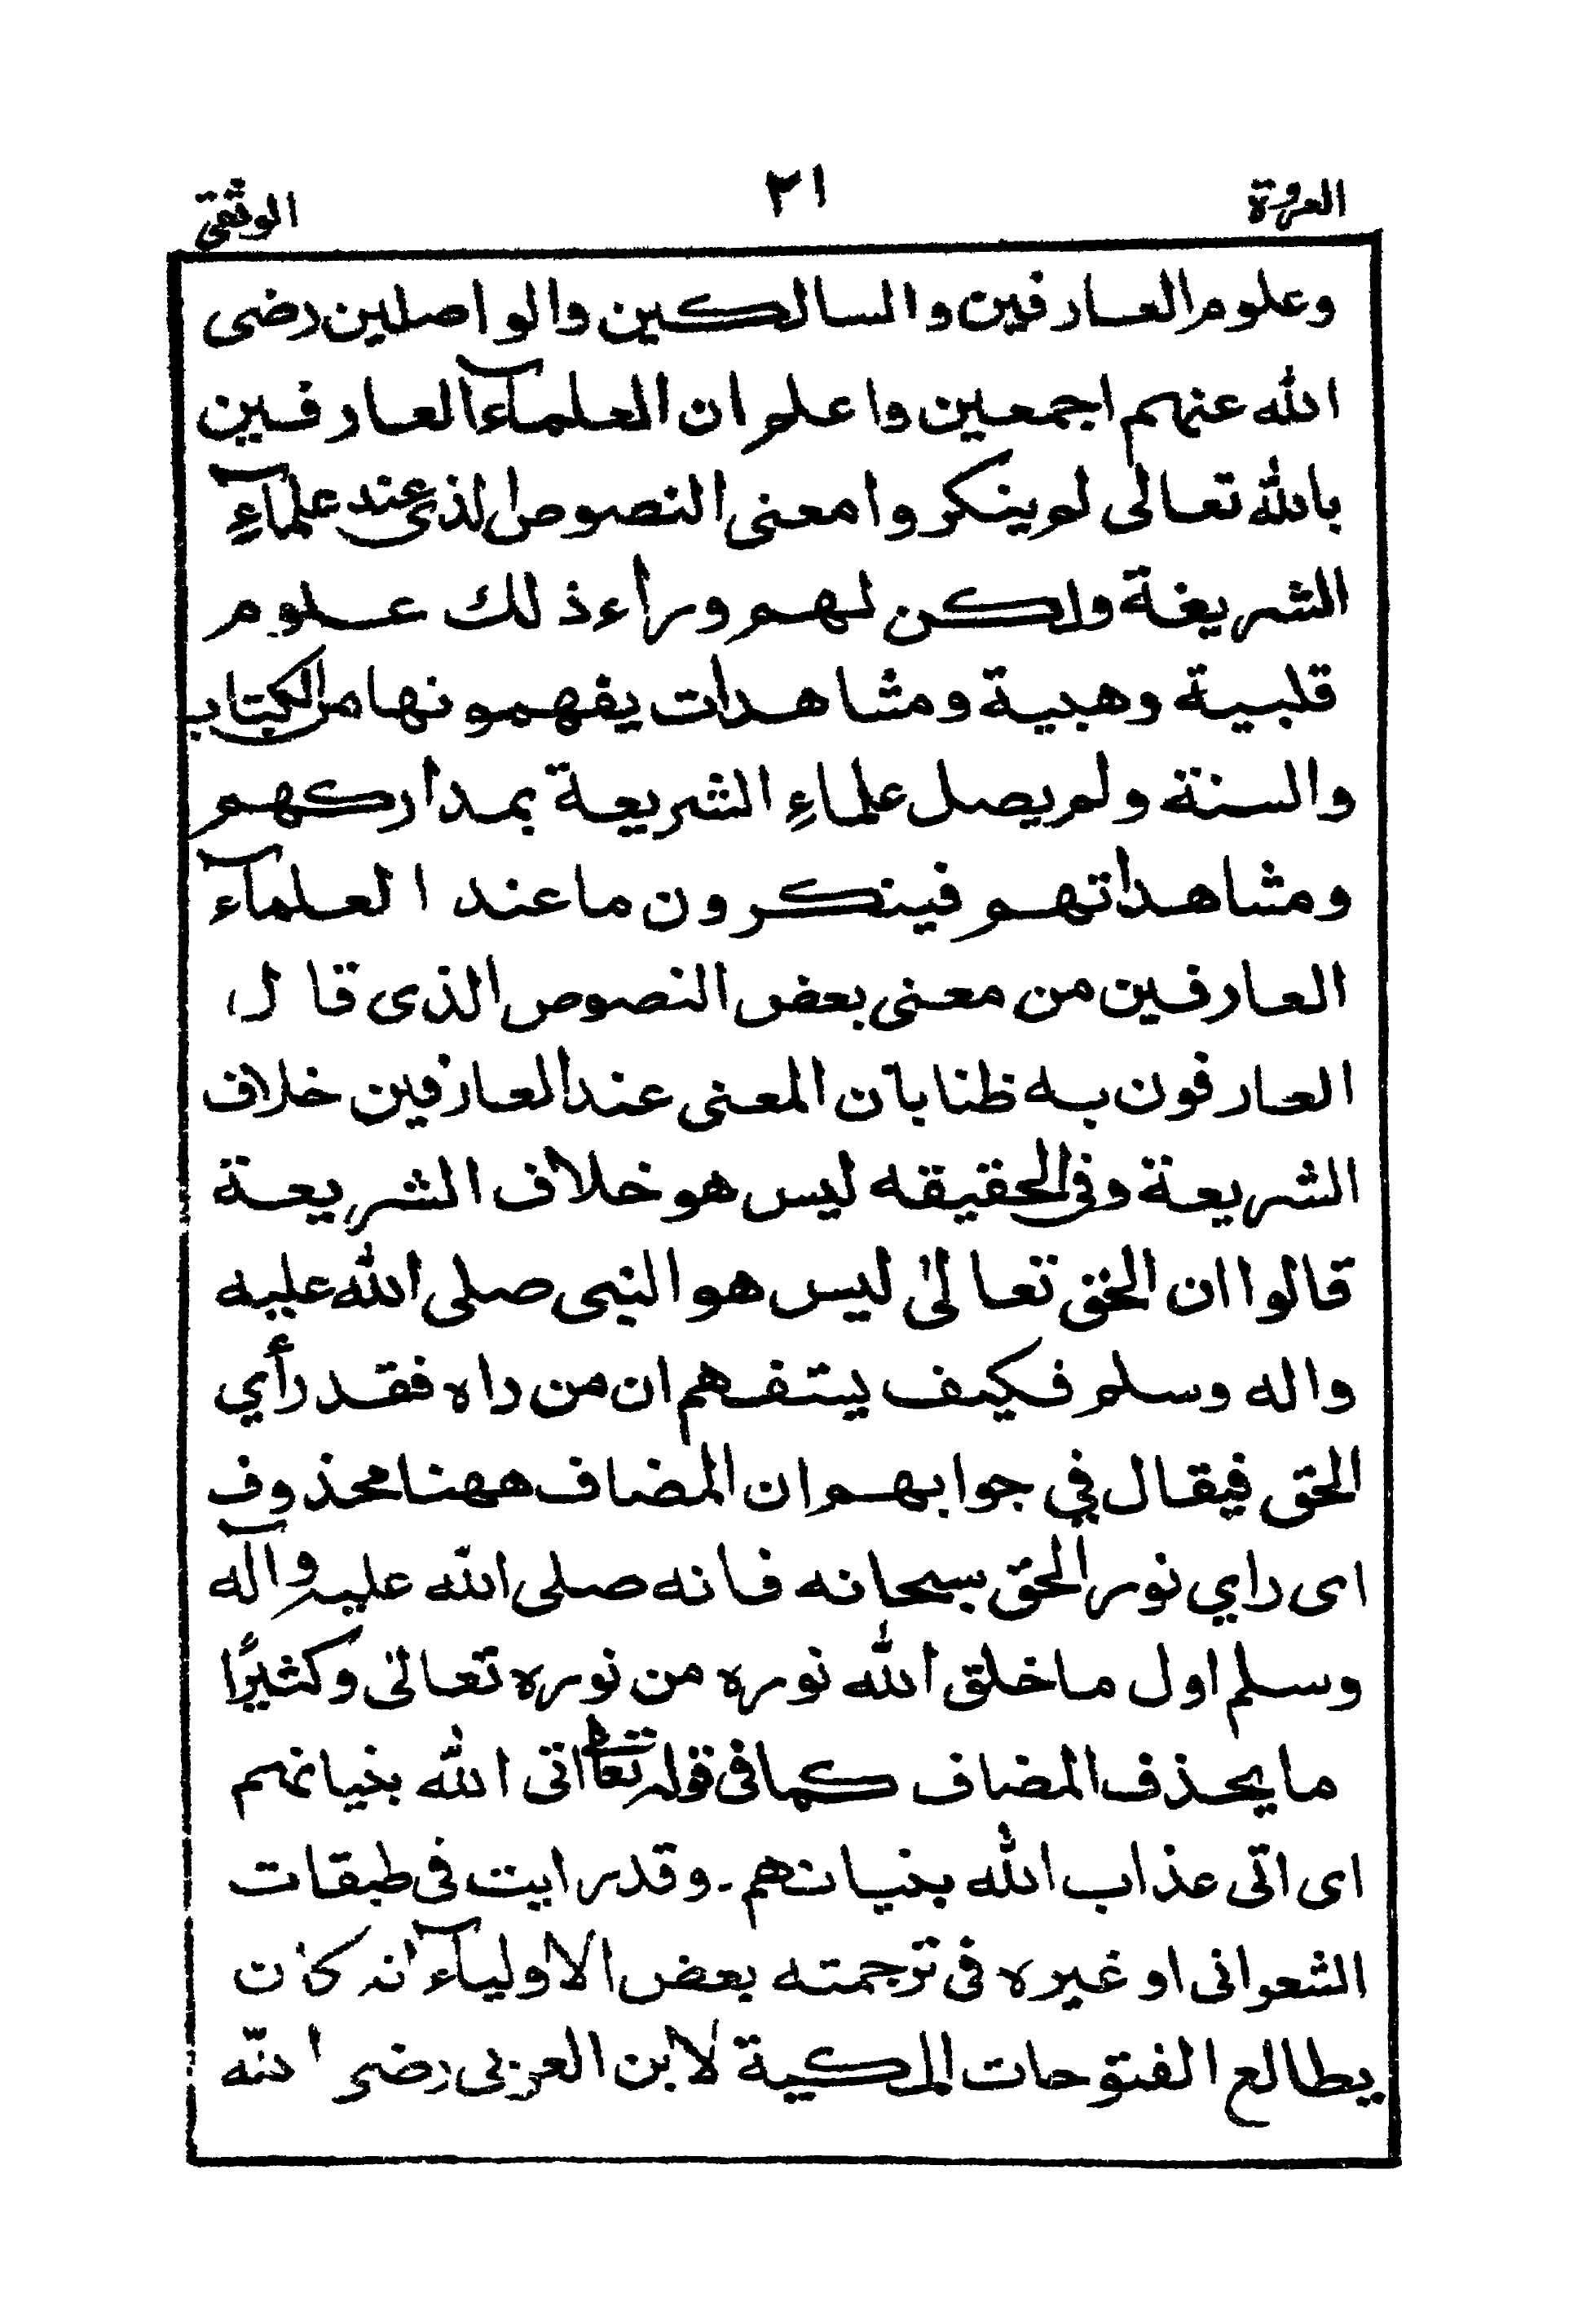 العروة ٢١ الوثقى
وعلوم العارفين والسالكين والواصلين رضى
الله عنهم اجمعين واعلم ان العلمآء العارفين
بالله تعالى لم ينكروا معنى النصوص الذى عند علمآءِ
الشريغة ولكن لهم وراء ذلك علوم
قلبية وهبية ومشاهدات يفهمونها من الكتاب
والسنة ولم يصل علماءِ الشريعة بمداركهم
ومشاهداتهم فينكرون ما عند العلمآء
العارفين من معنى بعض النصوص الذى قال
العارفون به ظنا بآن المعنى عند العارفين خلاف
الشريعة وفى الحقيقه ليس هو خلاف الشريعة
قالوا ان الحق تعالىٰ ليس هو النبى صلى الله عليه
واله وسلم فكيف يتفهم ان من راه فقد رأي
الحق فيقال في جوابهم ان المضاف ههنا محذوف
اى راي نور الحق سبحانه فانه صلى الله عليه وآله
وسلم اول ما خلق الله نوره من نوره تعالىٰ وكثيرًا
ما يحذف المضاف كما فى قوله تعالىٰ اتى الله بنيانهم
اى اتى عذاب الله بنيانهم ـ وقد رايت فى طبقات
الشعرانى او غيره فى ترجمته بعض الاوليآء انه كان
يطالع الفتوحات المكية لابن العربى رضى الله